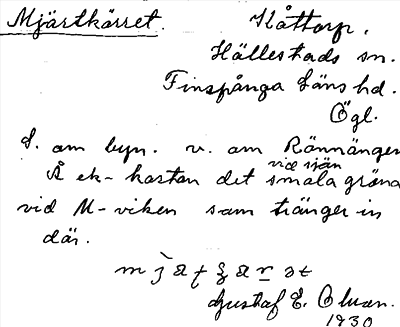 Mjärtkärret. Kåttorp.
Hällestads sn.
Finspånga läns hd.
Ögl.
S. om byn. v. om Rännängen
Å ek-kartan det smala gröna
vid sjön
vid M-viken som tränger in
där.
Gustaf E. Olsson.
1930